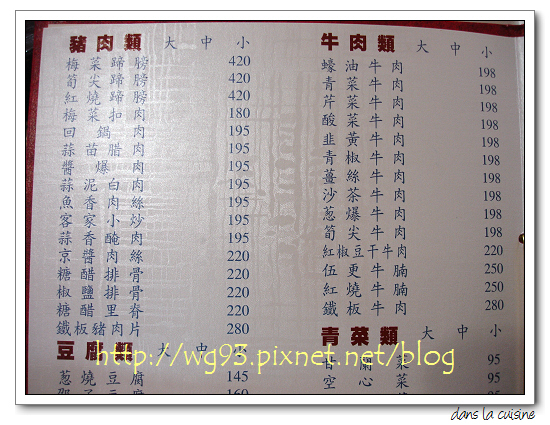 豬肉類 大 中 小
梅菜蹄膀 420
筍尖蹄膀 420
紅燒蹄膀 420
梅菜扣肉 180
回鍋肉 195
蒜苗臘肉 195
醬爆肉 195
蒜泥白肉 195
魚香肉絲 195
客家小炒 195
蒜香醃肉 195
京醬肉絲 220
糖醋排骨 220
椒鹽排骨 220
糖醋里脊 220
鐵板豬肉片 280
豆腐類 大 中 小
蔥燒豆腐 145
牛肉類 大 中 小
蠔油牛肉 198
青菜牛肉 198
芹菜牛肉 198
酸菜牛肉 198
韭黃牛肉 198
青椒牛肉 198
薑絲牛肉 198
沙茶牛肉 198
蔥爆牛肉 198
筍尖牛肉 198
紅椒豆干牛肉 220
伍更牛腩 250
紅燒牛腩 250
鐵板牛肉 280
青菜類 大 中 小
甘蘭菜 95
空心菜 95
http://wg93.pixnet.net/blog
dans la cuisine